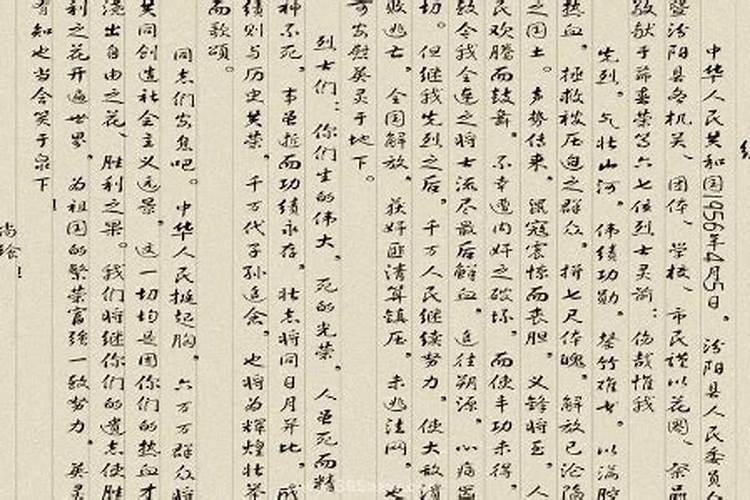 中华人民共和国1956年4月5日。汾阳县人民委员
暨汾阳县各机关、团体、学校、市民谨以花圈、祭品
敬献于节垂荣等六七位烈士灵前：伤哉惟我
先烈。气壮山河。伟绩功勋。罄竹难书。以满腔
热血。拯救被压迫之群众。拼七尺体魄。解放已沦陷
之国土。声势传来。鼠寇震惊而丧胆。义锋将至。人
民欢腾而鼓舞。不幸遭内奸之破坏。而使丰功未得。
鼓令我全连之将士流尽最后鲜血。追往朔源。心痛
切。但继我先烈之后。千万人民继续努力。使大敌
败逃亡。全国解放。获奸匪清算镇压。未逃法网。
言发慰英灵于地下。
烈士们：你们生的伟大。死的光荣。人虽死而精
神不死。事虽短而功绩永存。壮志将同日月并比。成
绩则与历史共荣。千万代子孙追念。也将为辉煌壮举
而歌颂。
同志们安息吧。中华人民挺起胸。六万万群众将
共同创造社会主义远景。这一切均是因你们的热血才
浇出自由之花、胜利之果。我们将继你们的遗志使胜
利之花开遍世界。为祖国的繁荣富强一致努力。英灵
有知也当含笑于泉下！
尚飨！